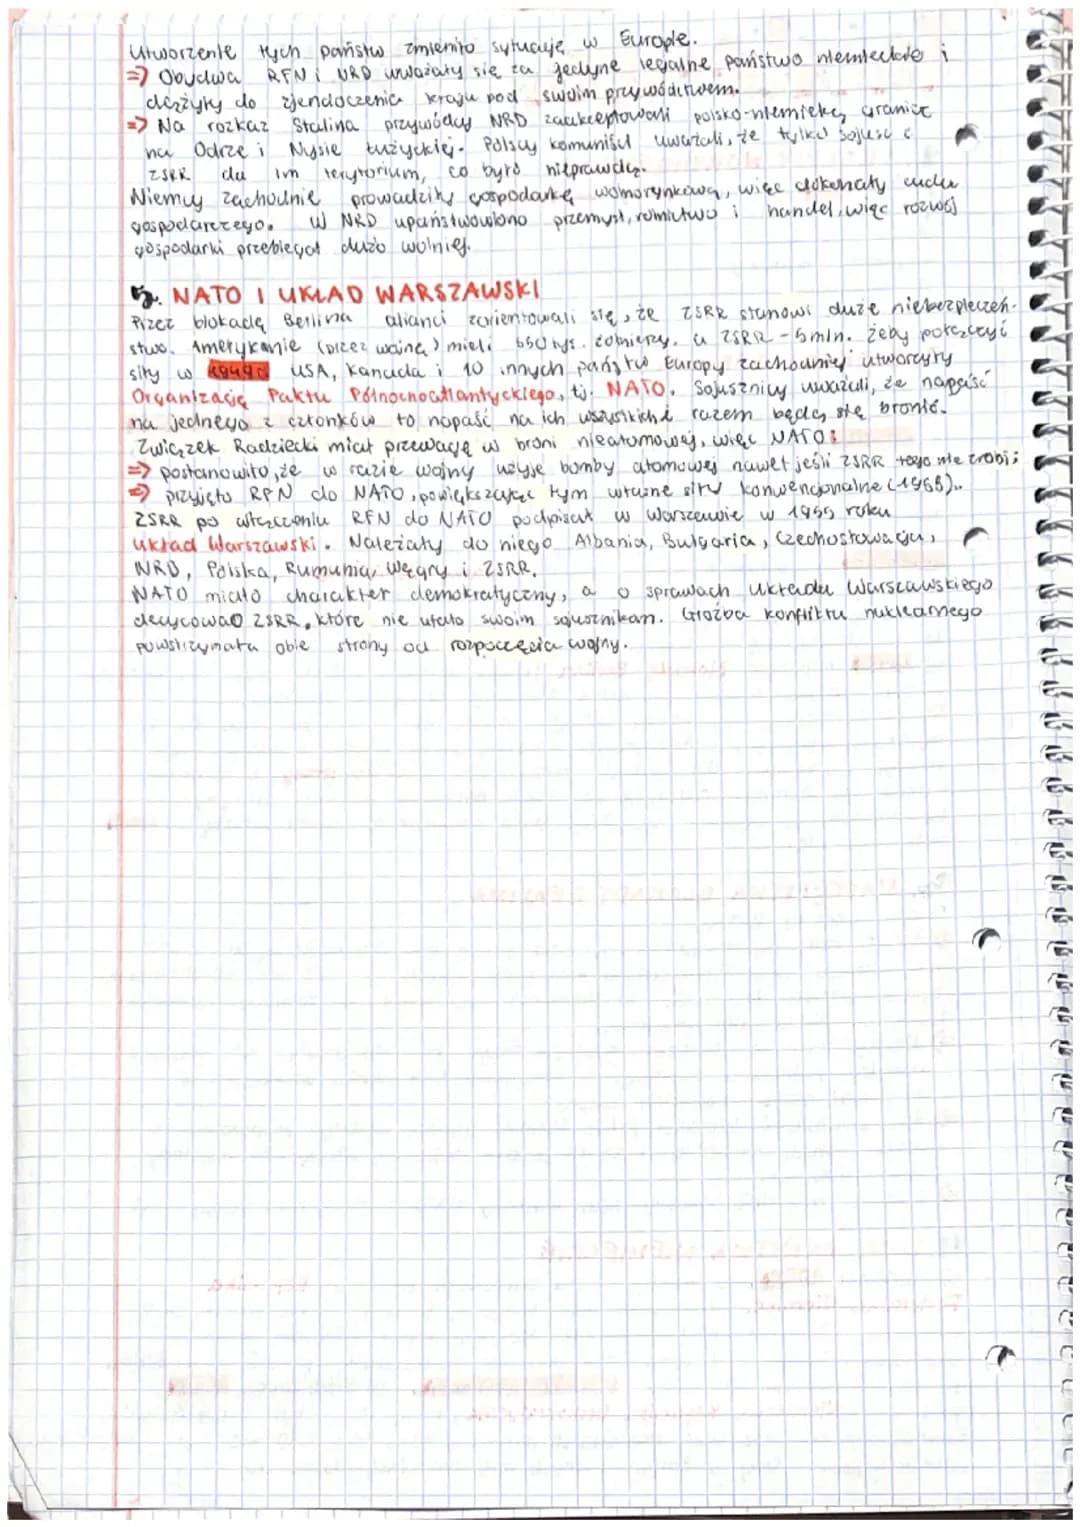 Utworzenie tych państw zmieniło sytuację w Europie.
=> Obydwa RFN i NRD uważały się za jedyne legalne państwo niemieckie i
dążyły do zjednoczenia kraju pod swoim przywództwem.
=> Na rozkaz Stalina przywódcy NRD zaakceptowali polsko-niemiecką granicę
na Odrze i Nysie Łużyckiej. Polscy komuniści uważali, że tylko sojusz z
ZSRR da im terytorium, co było nieprawdą.
Niemcy zachodnie prowadziły gospodarkę wolnorynkową, więc dokonały cudu
gospodarczego. W NRD upaństwowiono przemysł, rolnictwo i handel, więc rozwój
gospodarki przebiegał dużo wolniej.
5. NATO I UKŁAD WARSZAWSKI
Przez blokadę Berlina alianci zorientowali się, że ZSRR stanowi duże niebezpieczeń-
stwo. Amerykanie (przez wojnę) mieli 650 tys. żołnierzy, a ZSRR - 5 mln. Żeby połączyć
siły w 1949r USA, Kanada i 10 innych państw Europy zachodniej utworzyły
Organizację Paktu Północnoatlantyckiego, tj. NATO. Sojusznicy uważali, że napaść
na jednego z członków to napaść na ich wszystkich i razem będą się bronić.
Związek Radziecki miał przewagę w broni nieatomowej, więc NATO:
=> postanowiło, że w razie wojny użyje bomby atomowej nawet jeśli ZSRR tego nie zrobi;
=> przyjęto RFN do NATO, powiększając tym własne siły konwencjonalne (1955)..
ZSRR po włączeniu RFN do NATO podpisał w Warszawie w 1955 roku
Układ Warszawski. Należały do niego Albania, Bulgaria, Czechosłowacja,
NRD, Polska, Rumunia, Węgry i ZSRR.
NATO miało charakter demokratyczny, a o sprawach Układu Warszawskiego
decydował ZSRR, które nie ufało swoim sojusznikom. Groźba konfliktu nuklearnego
powstrzymała obie strony od rozpoczęcia wojny.